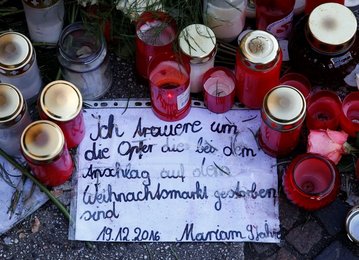 Ich trauere um
die Opfer die bei dem
Anschlag auf dem
Weihnachtsmarkt gestorben
sind
19.12.2016 Mariam 9 Jahre